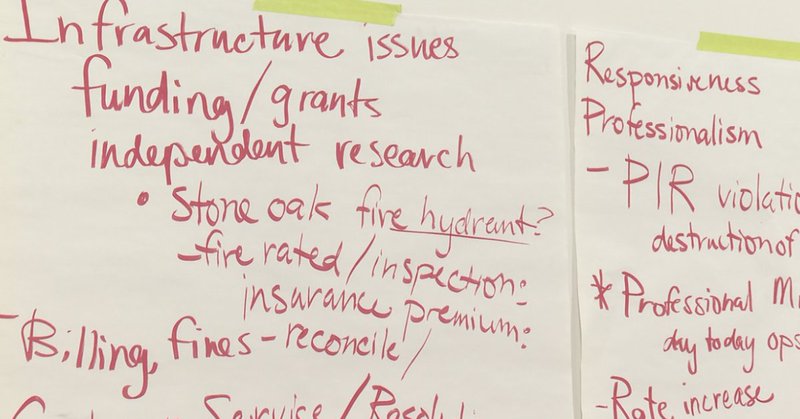 Infrastructure issues
funding/grants
independent research
• Stone oak fire hydrant?
-fire rated/inspection:
insurance premium:
- Billing, fines - reconcile /
Service /
Responsiveness
Professionalism
- PIR
destruction of
* Professional
day today ops
- Rate increase